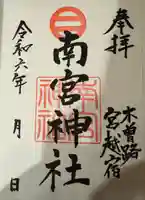 奉拝
木曽路
宮越宿
南宮神社
令和六年 月 日